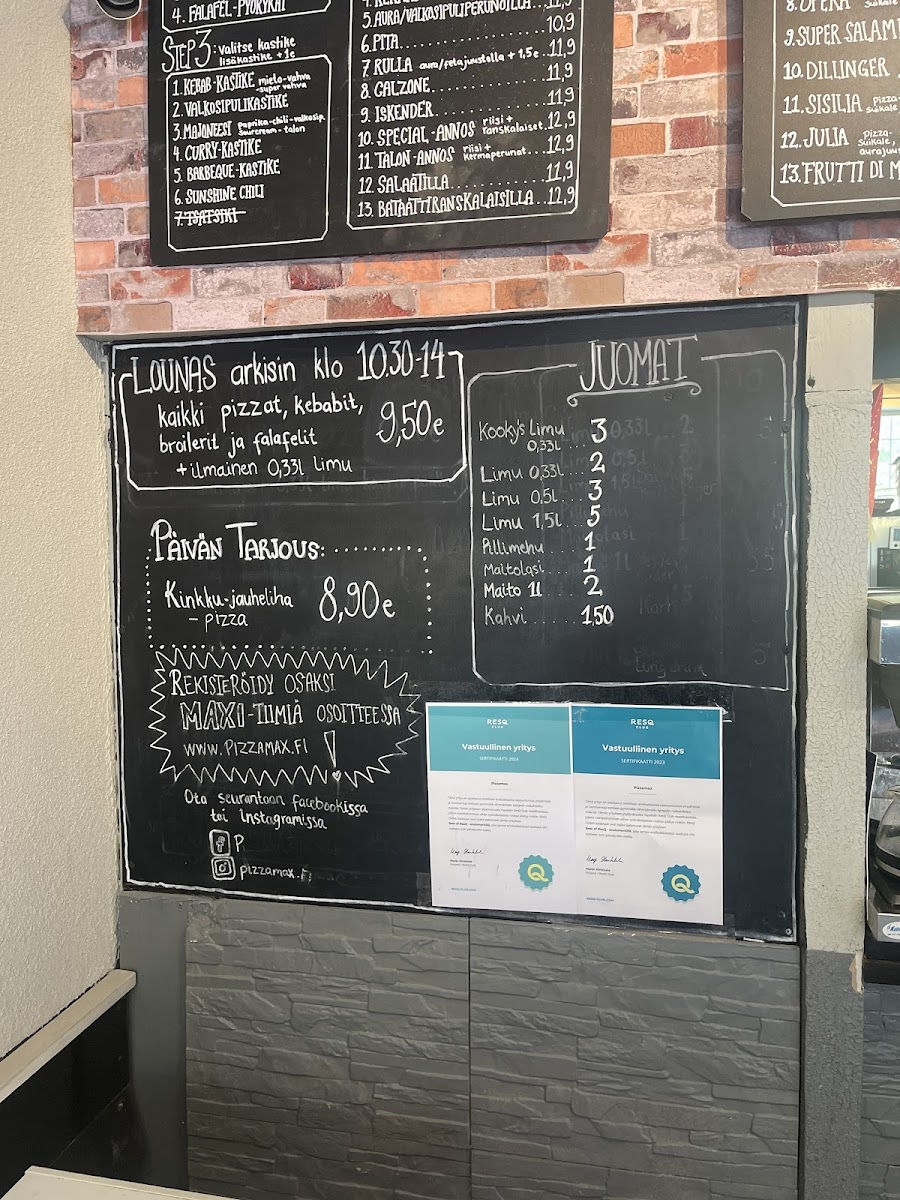 4. FALAFEL-PYÖRYKÄT
STEP 3: valitse kastike
lisäkastike + 1e
1. KEBAB-KASTIKE mieto-vahva
-super vahva
2. VALKOSIPULIKASTIKE
3. MAJONEESI paprika-chili-valkosip.
sourcream-talon
4. CURRY-KASTIKE
5. BARBEQUE-KASTIKE
6. SUNSHINE CHILI
7. TSATSIKI
5. AURA/VALKOSIPULIPERUNOILLA...11,9
6. PITA...10,9
7. RULLA aura/felajuustolla + 1,5e...11,9
8. CALZONE...11,9
9. ISKENDER...11,9
10. SPECIAL-ANNOS riisi +
ranskalaiset.12,9
11. TALON-ANNOS riisi +
kermaperunat...12,9
12. SALAATILLA...11,9
13. BATAATTIRANSKALAISILLA...12,9
8. OPERA
9. SUPER SALAMI
10. DILLINGER
11. SISILIA Pizza-
suikale
12. JULIA Pizza-
suikale,
13. FRUTTI DI M
LOUNAS arkisin klo 10.30-14
kaikki pizzat, kebabit,
broilerit ja falafelit 9,50e
+ ilmainen 0,33l limu
PÄIVÄN TARJOUS:
Kinkku-jauheliha
- pizza 8,90e
REKISTERÖIDY OSAKSI
MAXI-TIIMIÄ OSOITTEESSA
WWW.PIZZAMAX.FI !
Ota seurantaan facebookissa
tai Instagramissa
P
pizzamax.fi
JUOMAT
Kooky's Limu
0,33l 3
Limu 0,33l... 2
Limu 0,5l... 3
Limu 1,5l... 5
Pillimehu... 1
Maitolasi... 1
Maito 1l... 2
Kahvi... 1,50
RESQ
CLUB
Vastuullinen yritys
SERTIFIKAATTI 2024
Pizzamax
RESQ
CLUB
Vastuullinen yritys
SERTIFIKAATTI 2023
Pizzamax